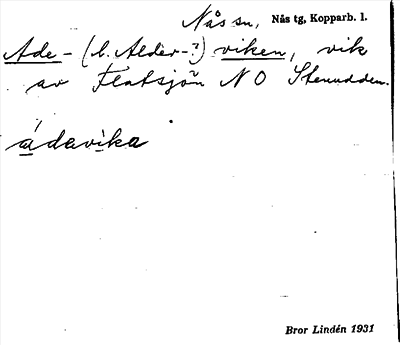 Nås sn, Nås tg, Kopparb. l.
Ade- (l. Alder-?) viken, vik
av Flatsjön NO Stenudden.
ádavika
Bror Lindén 1931